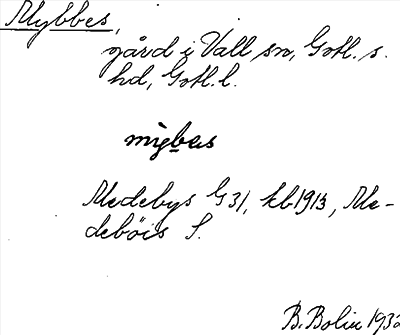 Mybbes,
gård i Vall sn, Gotl. s.
hd, Gotl. l.
mỳbas
Medebys G 31, kb 1913, Me-
deböis S.
B. Bolin 1932